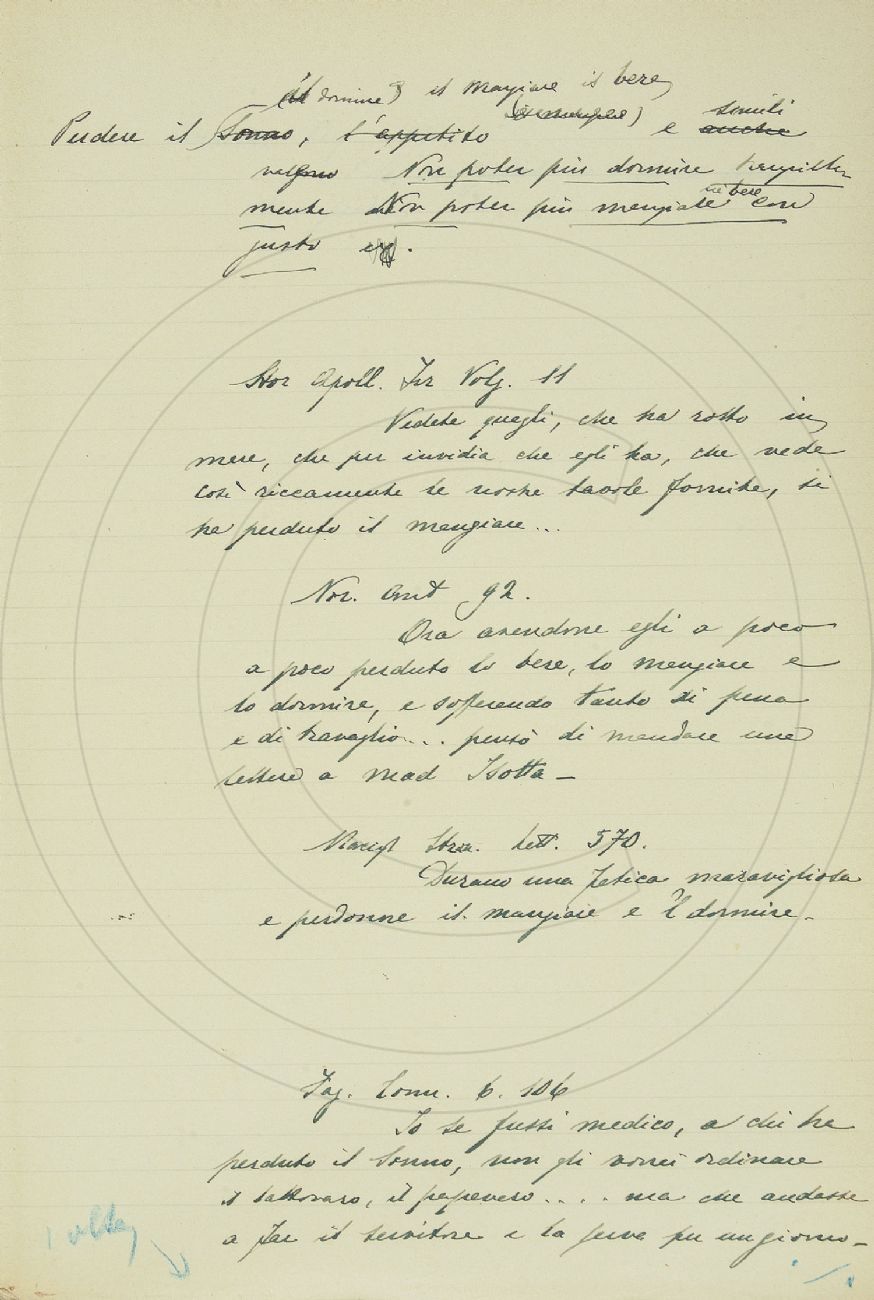 (il dormire) il mangiare il bere,
Perdere il sonno, l'appetito e anche simili
valgono Non poter più dormire tranquilla-
mente Non poter più mangiare nè bere con
gusto
Stor Apoll. Tir Volg. 11
Vedete quegli, che ha rotto in
mare, che per invidia che egli ha, che vede
così riccamente le nostre tavole fornite, si
ha perduto il mangiare...
Nov. Ant 92.
Ora avendone egli a poco
a poco perduto lo bere, lo mangiare e
lo dormire, e sofferendo tanto di pena
e di travaglio... pensò di mandare una
lettera a mad Isotta _
Macigh Stroz. Lett. 570.
Durano una fatica maravigliosa
e perdonne il mangiare e 'l dormire.
Fag. Comm. 6. 106
Io se fussi medico, a chi ha
perduto il sonno, non gli vorrei ordinare
il lattovaro, il papavero.... ma che andasse
a far il servitore e la serva per un giorno_
volta